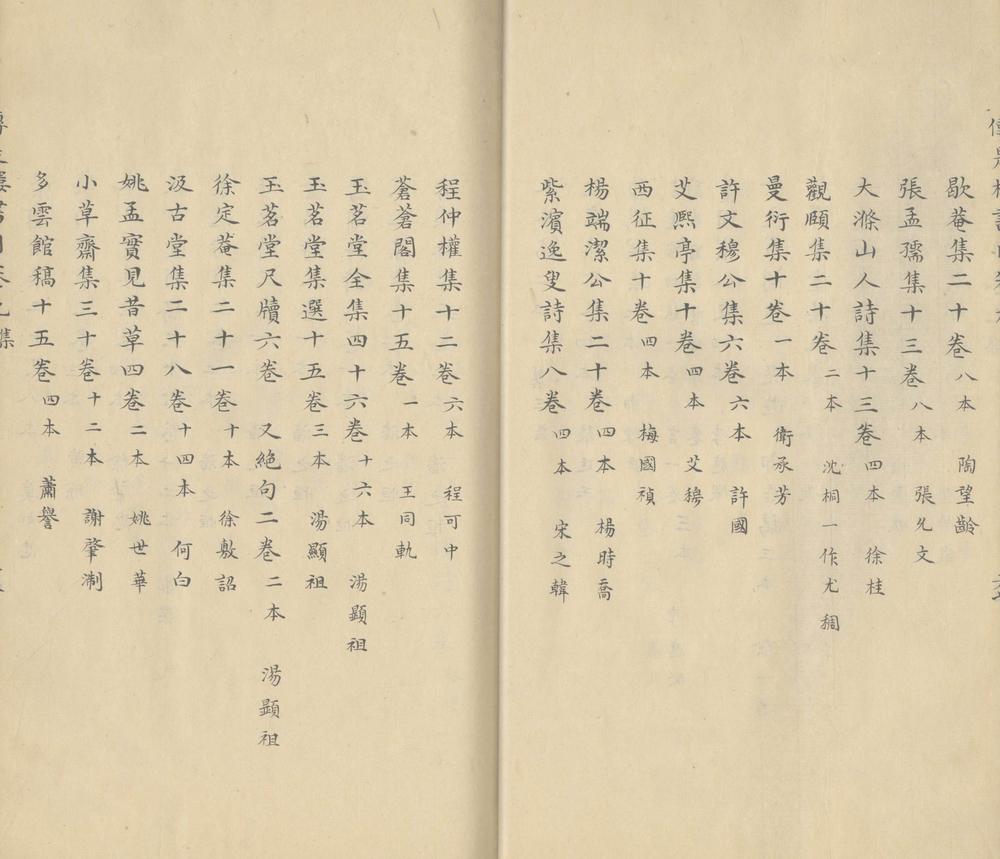 歇菴集二十卷 八本 陶望齡
張孟孺集十三卷 八本 張允文
大滌山人詩集十三卷 四本 徐桂
觀頤集二十卷 二本 沈桐一作尤稠
曼衍集十卷 一本 衛承芳
許文穆公集六卷 六本 許國
艾熙亭集十卷 四本 艾穆
西征集十卷 四本 梅國禎
楊端潔公集二十卷 四本 楊時喬
紫濱逸叟詩集八卷 四本 宋之韓
程仲權集十二卷 六本 程可中
蒼蒼閣集十五卷 一本 王同軌
玉茗堂全集四十六卷 十六本 湯顯祖
玉茗堂集選十五卷 三本 湯顯祖
玉茗堂尺牘六卷 又絕句二卷 二本 湯顯祖
徐定菴集二十一卷 十本 徐敷詔
汲古堂集二十八卷 十四本 何白
姚孟實見昔草四卷 二本 姚世華
小草齋集三十卷 十二本 謝肇淛
多雲館稿十五卷 四本 蕭譽